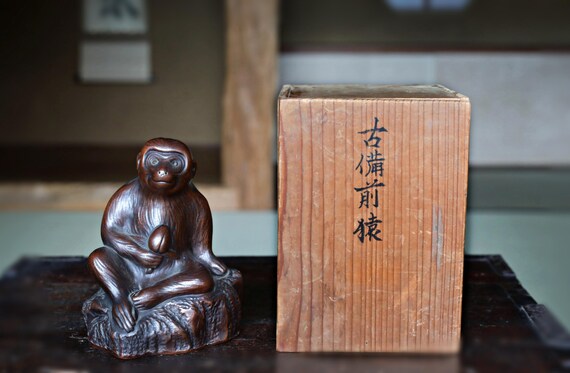 古備前猿